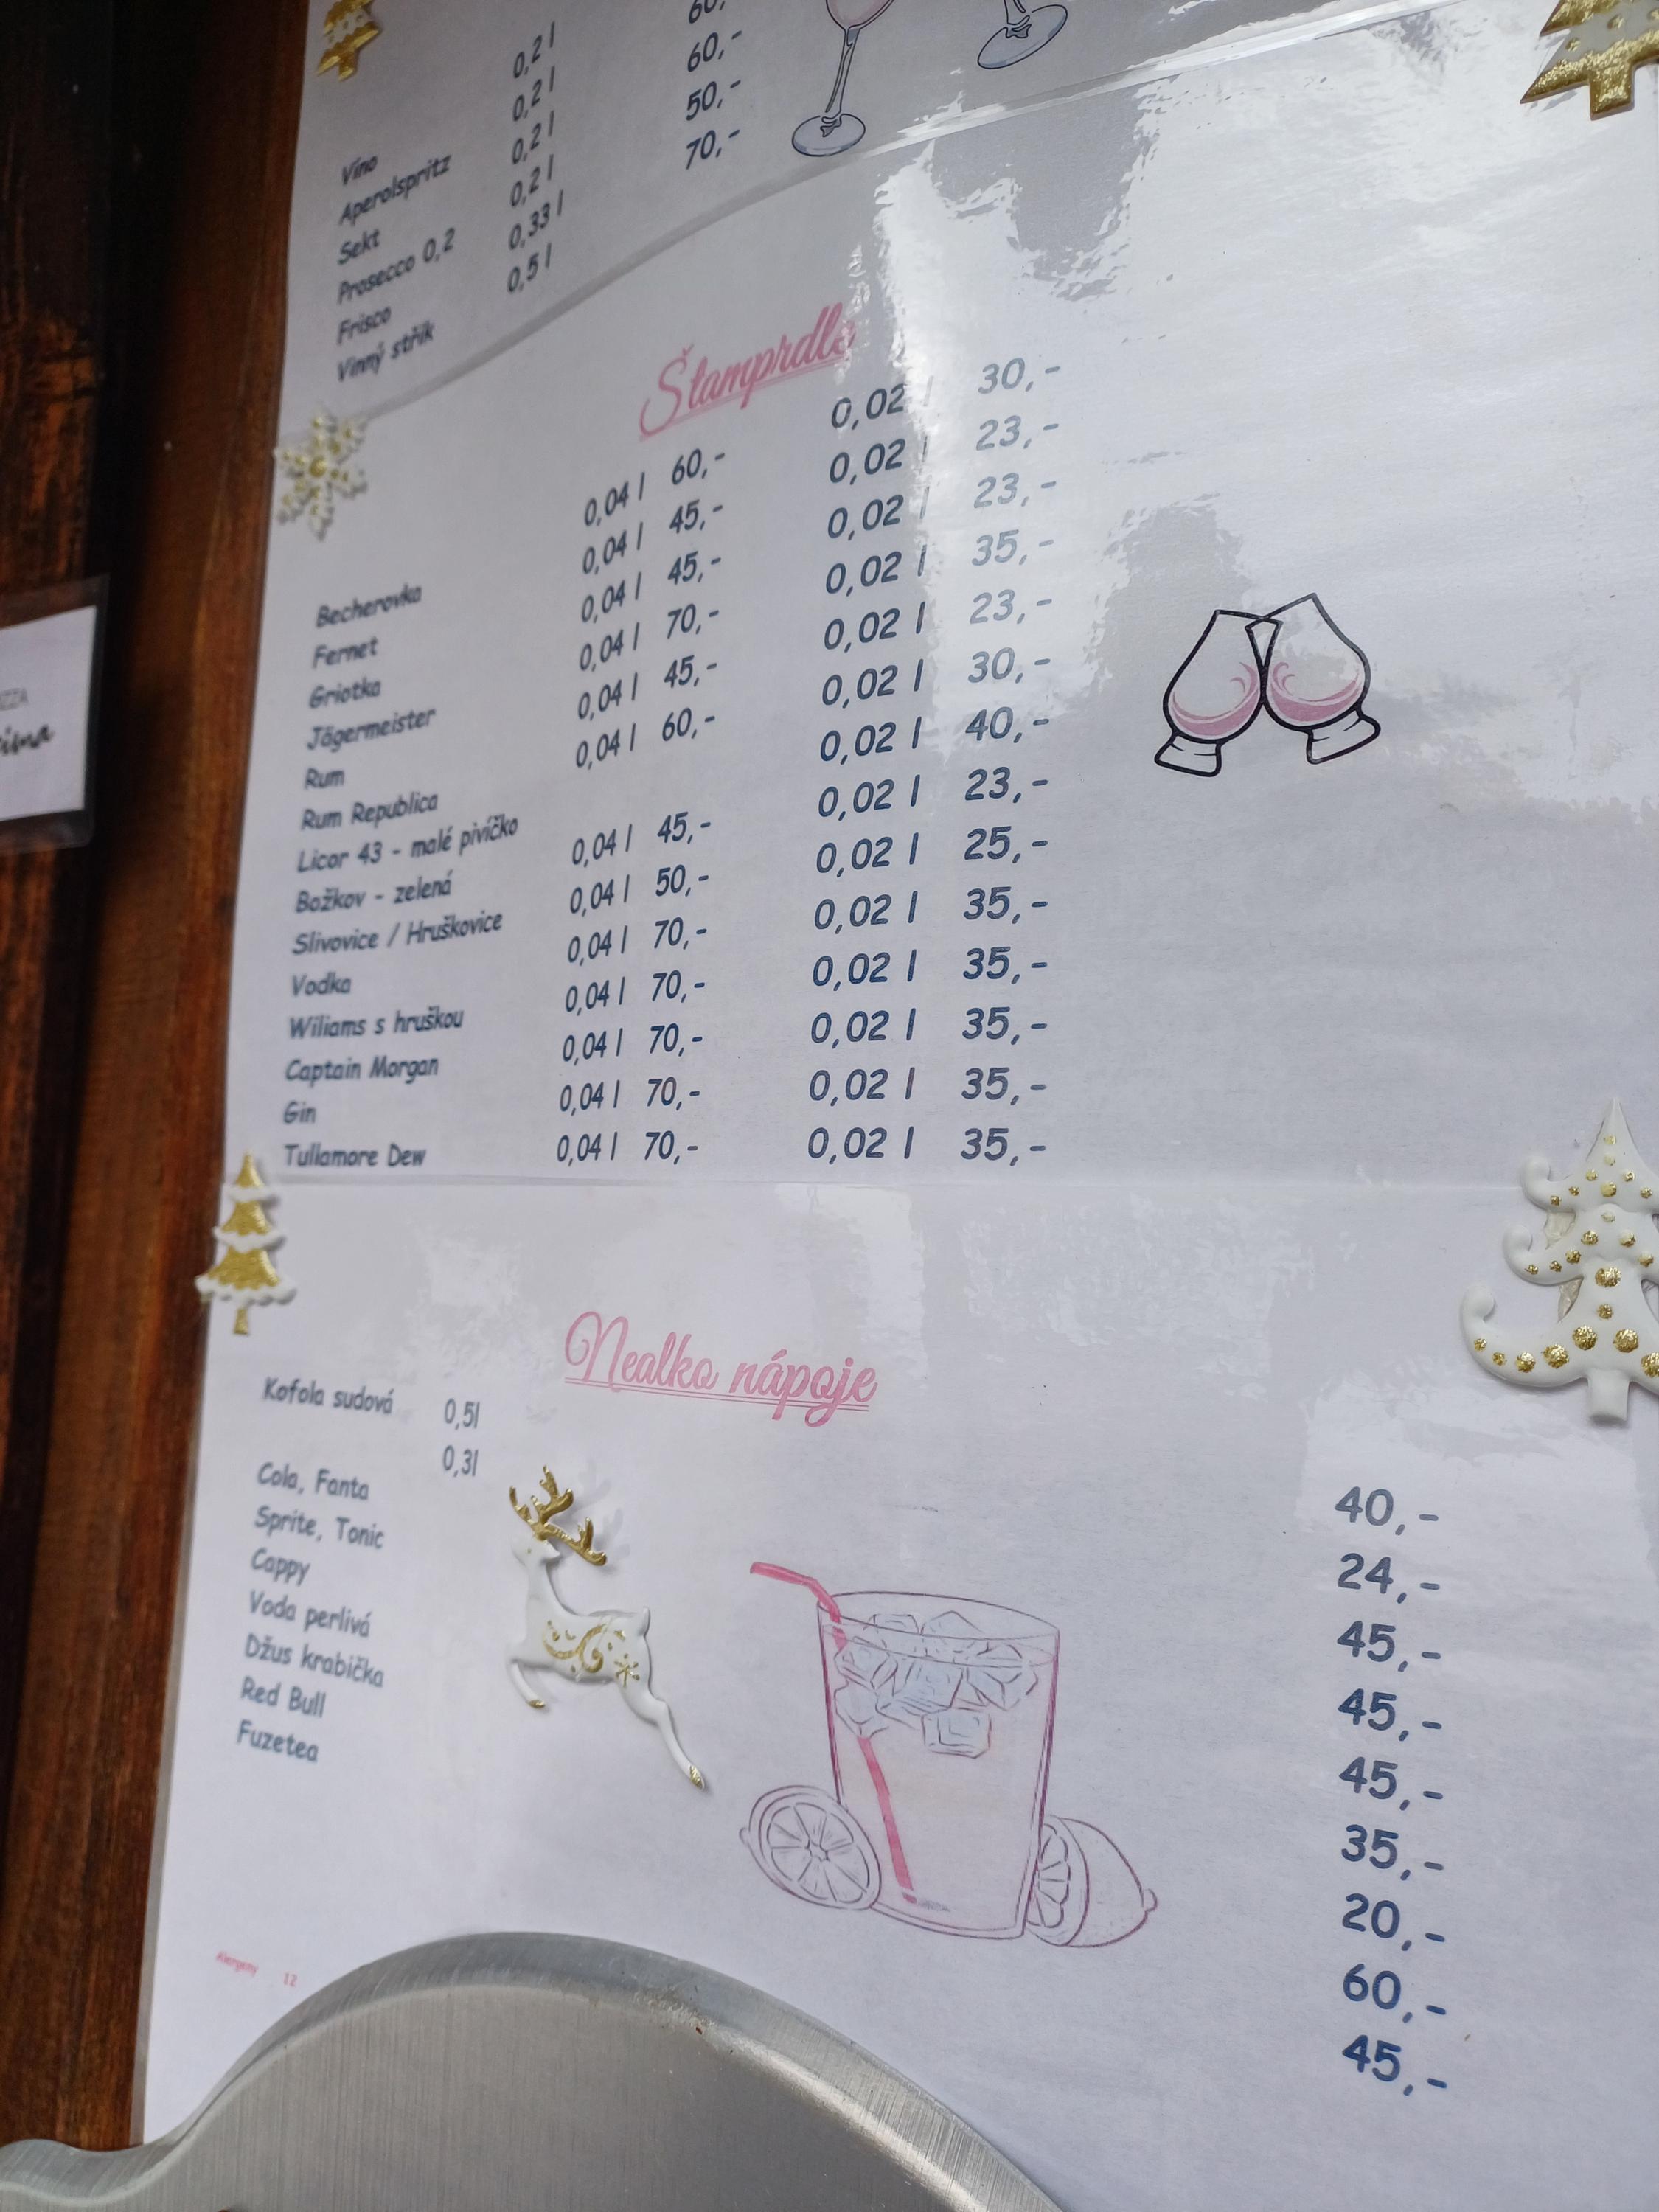 Víno 0,2 l
Aperolspritz 0,2 l
Sekt 0,2 l 60,-
Prosecco 0,2 0,2 l 60,-
Frisco 0,33 l 50,-
Vinný střik 0,5 l 70,-
Štamprdle
Becherovka 0,04 l 60,- 0,02 l 30,-
Fernet 0,04 l 45,- 0,02 l 23,-
Griotka 0,04 l 45,- 0,02 l 23,-
Jägermeister 0,04 l 70,- 0,02 l 35,-
Rum 0,04 l 45,- 0,02 l 23,-
Rum Republica 0,04 l 60,- 0,02 l 30,-
Licor 43 - malé pivíčko 0,02 l 40,-
Božkov - zelená 0,04 l 45,- 0,02 l 23,-
Slivovice / Hruškovice 0,04 l 50,- 0,02 l 25,-
Vodka 0,04 l 70,- 0,02 l 35,-
Wiliams s hruškou 0,04 l 70,- 0,02 l 35,-
Captain Morgan 0,04 l 70,- 0,02 l 35,-
Gin 0,04 l 70,- 0,02 l 35,-
Tullamore Dew 0,04 l 70,- 0,02 l 35,-
Nealko nápoje
Kofola sudová 0,5l 40,-
0,3l 24,-
Cola, Fanta 45,-
Sprite, Tonic 45,-
Cappy 45,-
Voda perlivá 35,-
Džus krabička 20,-
Red Bull 60,-
Fuzetea 45,-
Alergeny 12